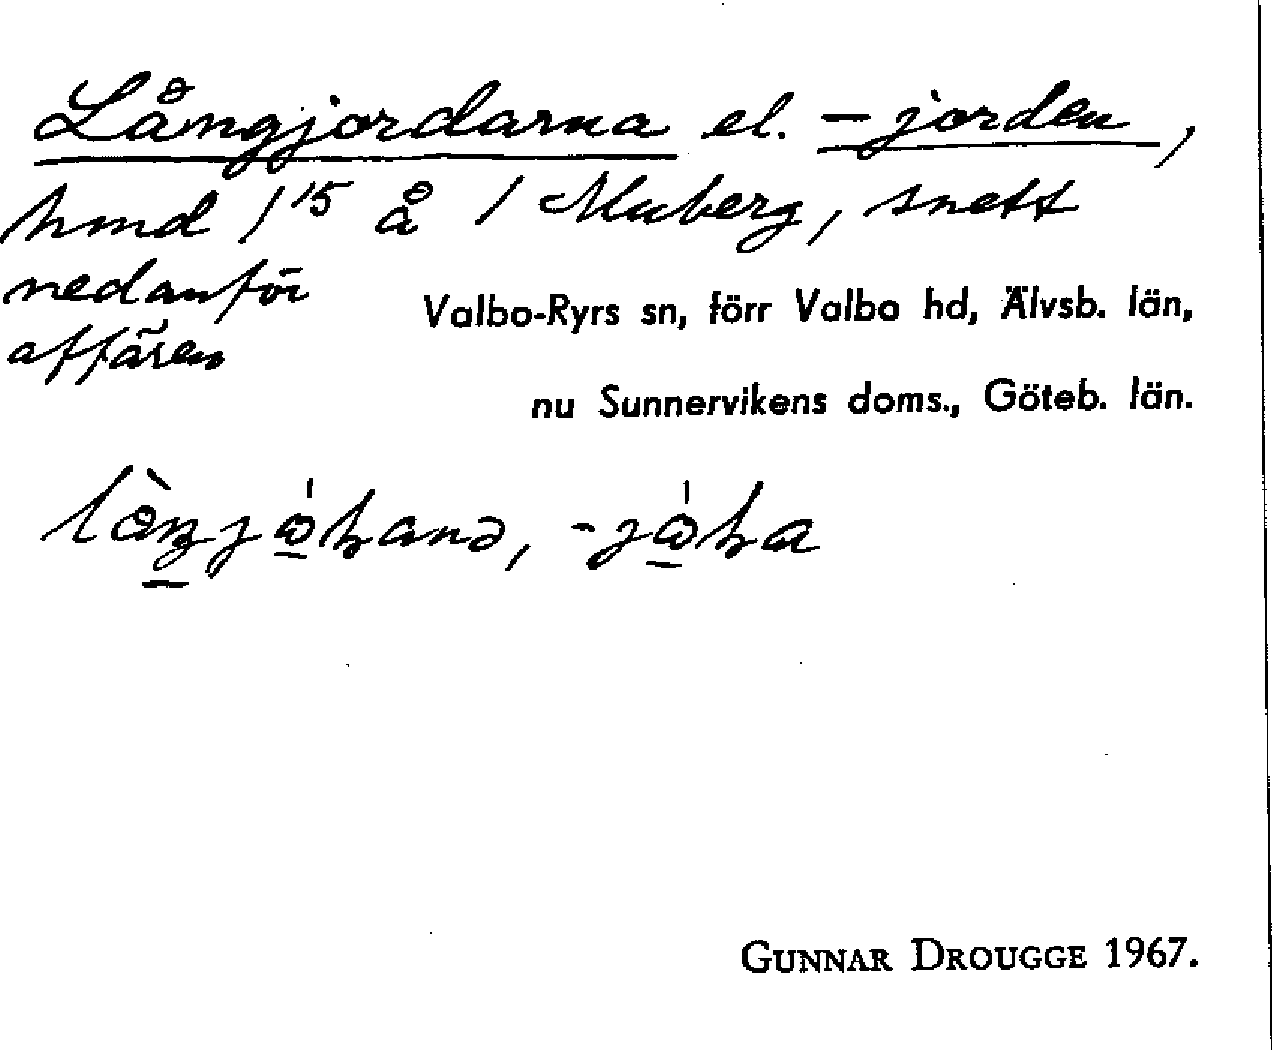 Långjordarna el. -jorden,
hmd 1¹⁵ å / Muberg, snett
nedanför
affären
Valbo-Ryrs sn, förr Valbo hd, Älvsb. län,
nu Sunnervikens doms., Göteb. län.
GUNNAR DROUGGE 1967.